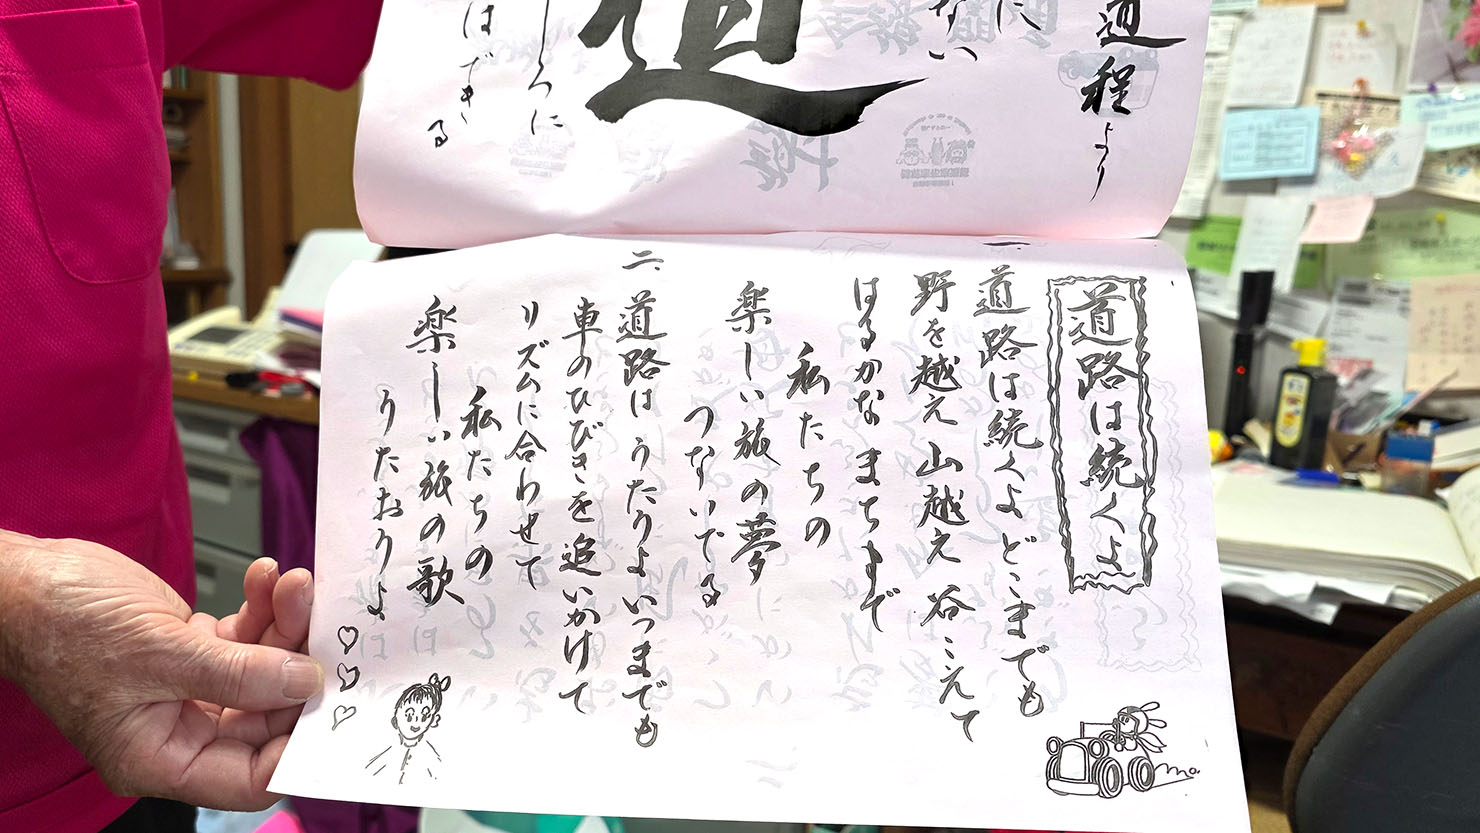 道程より
に
ない
道
しろに
はできる
道路は続くよ
一、道路は続くよ どこまでも
野を越え 山越え 谷こえて
はるかな まちまで
私たちの
楽しい旅の夢
つないでる
二、道路は うたうよ いつまでも
車のひびきを 追いかけて
リズムに合わせて
私たちの
楽しい旅の歌
うたおうよ